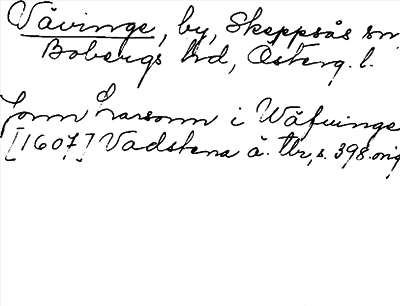 Vävinge, by, Skeppsås sn
Bobergs hrd, Österg. l.
Jonn Larsonn i Wäfuinge
[1607] Vadstena ä. tbr, s. 398. orig